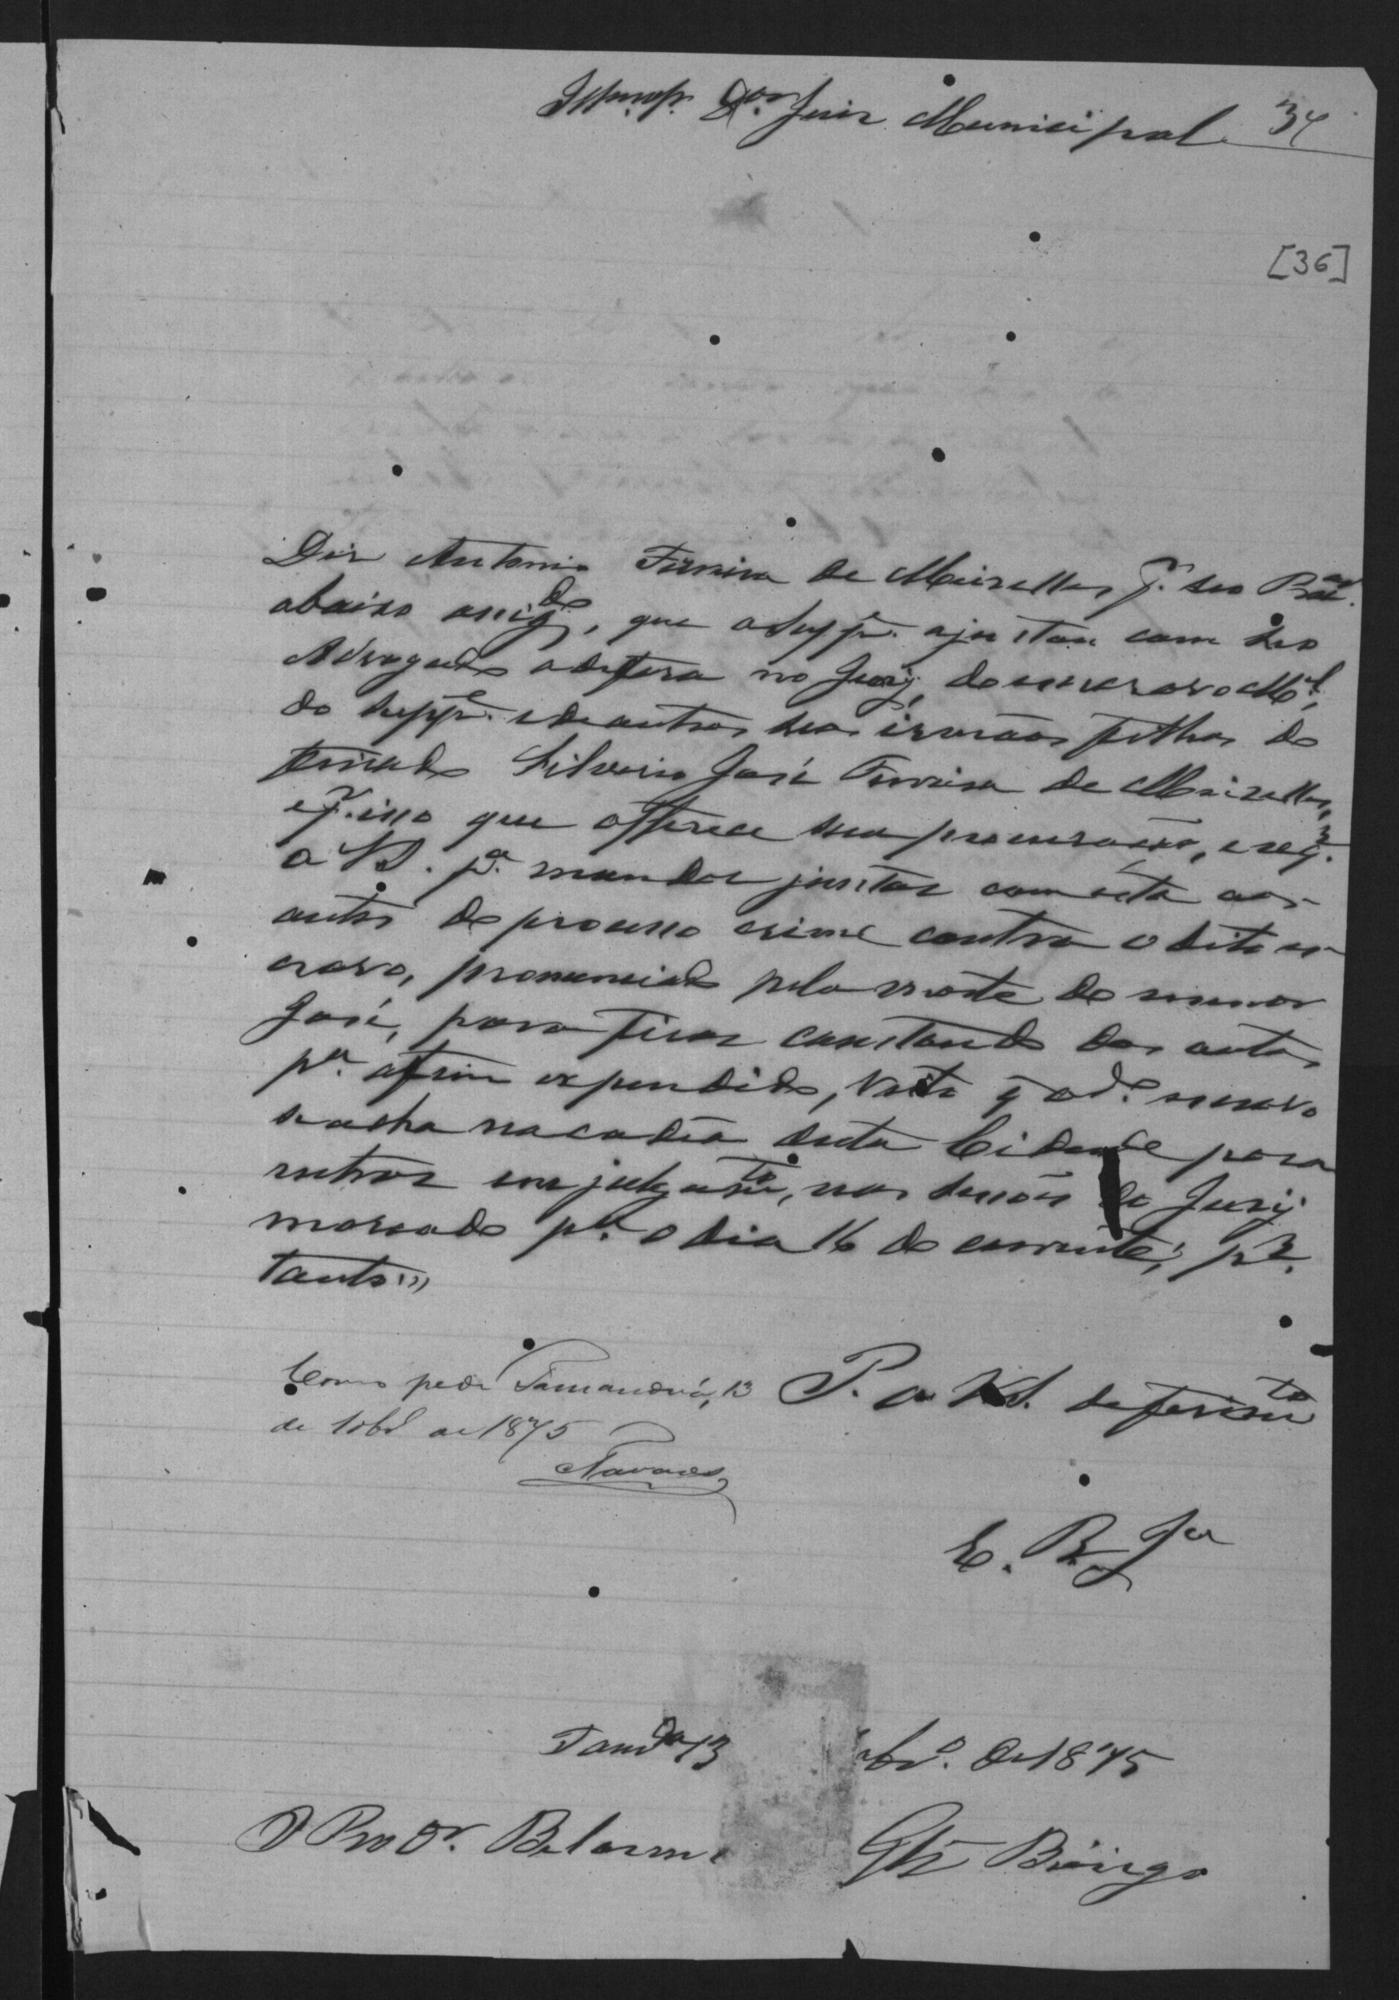 Illmo. Sr. Dor. Juiz Municipal 34
[36]
Diz Antonio Ferreira de Meirelles pr. seo
abaixo assigdo, que o Suppe. ajustou com seo
Advogado a defeza no Jury, do escravo Mel,
do Suppe. e de outros seos irmãos filhos do
finado Silverio José Ferreira de Meirelles,
e pr. isso que offerece sua procuração, e reqr.
a VS. pa. mandar juntar com esta aos
autos do processo crime contra o dito es-
cravo, pronunciado pela morte do menor
José, para ficar constando dos autos
pa. o fim expendido, visto q̃ o do. escravo
se acha na cadêa desta Cidade para
entrar em julgamto, na sessão do Jury
marcado pa. o dia 16 do corrente; pr.
tanto,,
P. a VS. deferimto
Como pede Tamanduá, 13
de 10bro de 1875
Tavares
E. R. Ja
Tamda 13 de 1875
O Prodor. Belarmi